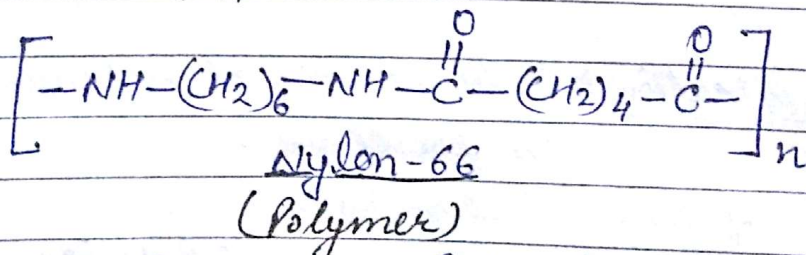 O O
[-NH-(CH2)6-NH-C-(CH2)4-C-]n
Nylon-66
(Polymer)